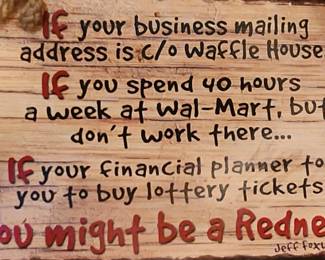 If your business mailing
address is c/o Waffle House
If you spend 40 hours
a week at Wal-Mart, but
don't work there...
If your financial planner to
you to buy lottery tickets
ou might be a Redne
Jeff Foxw